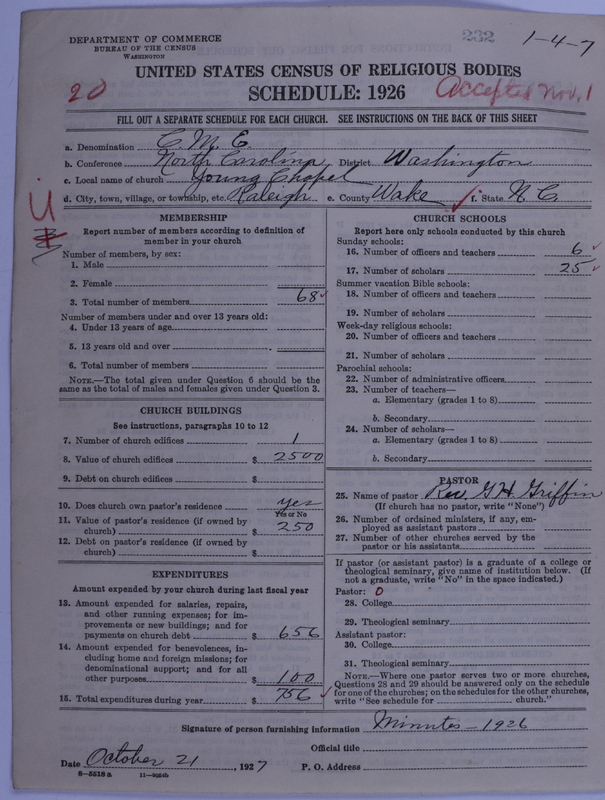 232
1-4-7
DEPARTMENT OF COMMERCE
BUREAU OF THE CENSUS
WASHINGTON
UNITED STATES CENSUS OF RELIGIOUS BODIES
20
SCHEDULE: 1926
Accepted Nov. 1
FILL OUT A SEPARATE SCHEDULE FOR EACH CHURCH. SEE INSTRUCTIONS ON THE BACK OF THIS SHEET
a. Denomination C. M. E
b. Conference North Carolina District Washington
c. Local name of church Young Chapel
d. City, town, village, or township, etc. Raleigh e. County Wake f. State N. C.
MEMBERSHIP
Report number of members according to definition of
member in your church
Number of members, by sex:
1. Male
2. Female
3. Total number of members 68
Number of members under and over 13 years old:
4. Under 13 years of age
5. 13 years old and over
6. Total number of members
NOTE.—The total given under Question 6 should be the
same as the total of males and females given under Question 3.
CHURCH BUILDINGS
See instructions, paragraphs 10 to 12
7. Number of church edifices 1
8. Value of church edifices $ 2500
9. Debt on church edifices $
10. Does church own pastor's residence yes
Yes or No
11. Value of pastor's residence (if owned by
church) $ 250
12. Debt on pastor's residence (if owned by
church) $
EXPENDITURES
Amount expended by your church during last fiscal year
13. Amount expended for salaries, repairs,
and other running expenses; for im-
provements or new buildings; and for
payments on church debt $ 656
14. Amount expended for benevolences, in-
cluding home and foreign missions; for
denominational support; and for all
other purposes $ 100
15. Total expenditures during year $ 756
CHURCH SCHOOLS
Report here only schools conducted by this church
Sunday schools:
16. Number of officers and teachers 6
17. Number of scholars 25
Summer vacation Bible schools:
18. Number of officers and teachers
19. Number of scholars
Week-day religious schools:
20. Number of officers and teachers
21. Number of scholars
Parochial schools:
22. Number of administrative officers
23. Number of teachers—
a. Elementary (grades 1 to 8)
b. Secondary
24. Number of scholars—
a. Elementary (grades 1 to 8)
b. Secondary
PASTOR
25. Name of pastor Rev. G. H. Griffin
(If church has no pastor, write "None")
26. Number of ordained ministers, if any, em-
ployed as assistant pastors
27. Number of other churches served by the
pastor or his assistants
If pastor (or assistant pastor) is a graduate of a college or
theological seminary, give name of institution below. (If
not a graduate, write "No" in the space indicated.)
Pastor: 0
28. College
29. Theological seminary
Assistant pastor:
30. College
31. Theological seminary
NOTE.—Where one pastor serves two or more churches,
Questions 28 and 29 should be answered only on the schedule
for one of the churches; on the schedules for the other churches,
write "See schedule for church."
Signature of person furnishing information Minutes—1926
Official title
Date October 21, 1927 P. O. Address
8—5518a 11—9054b